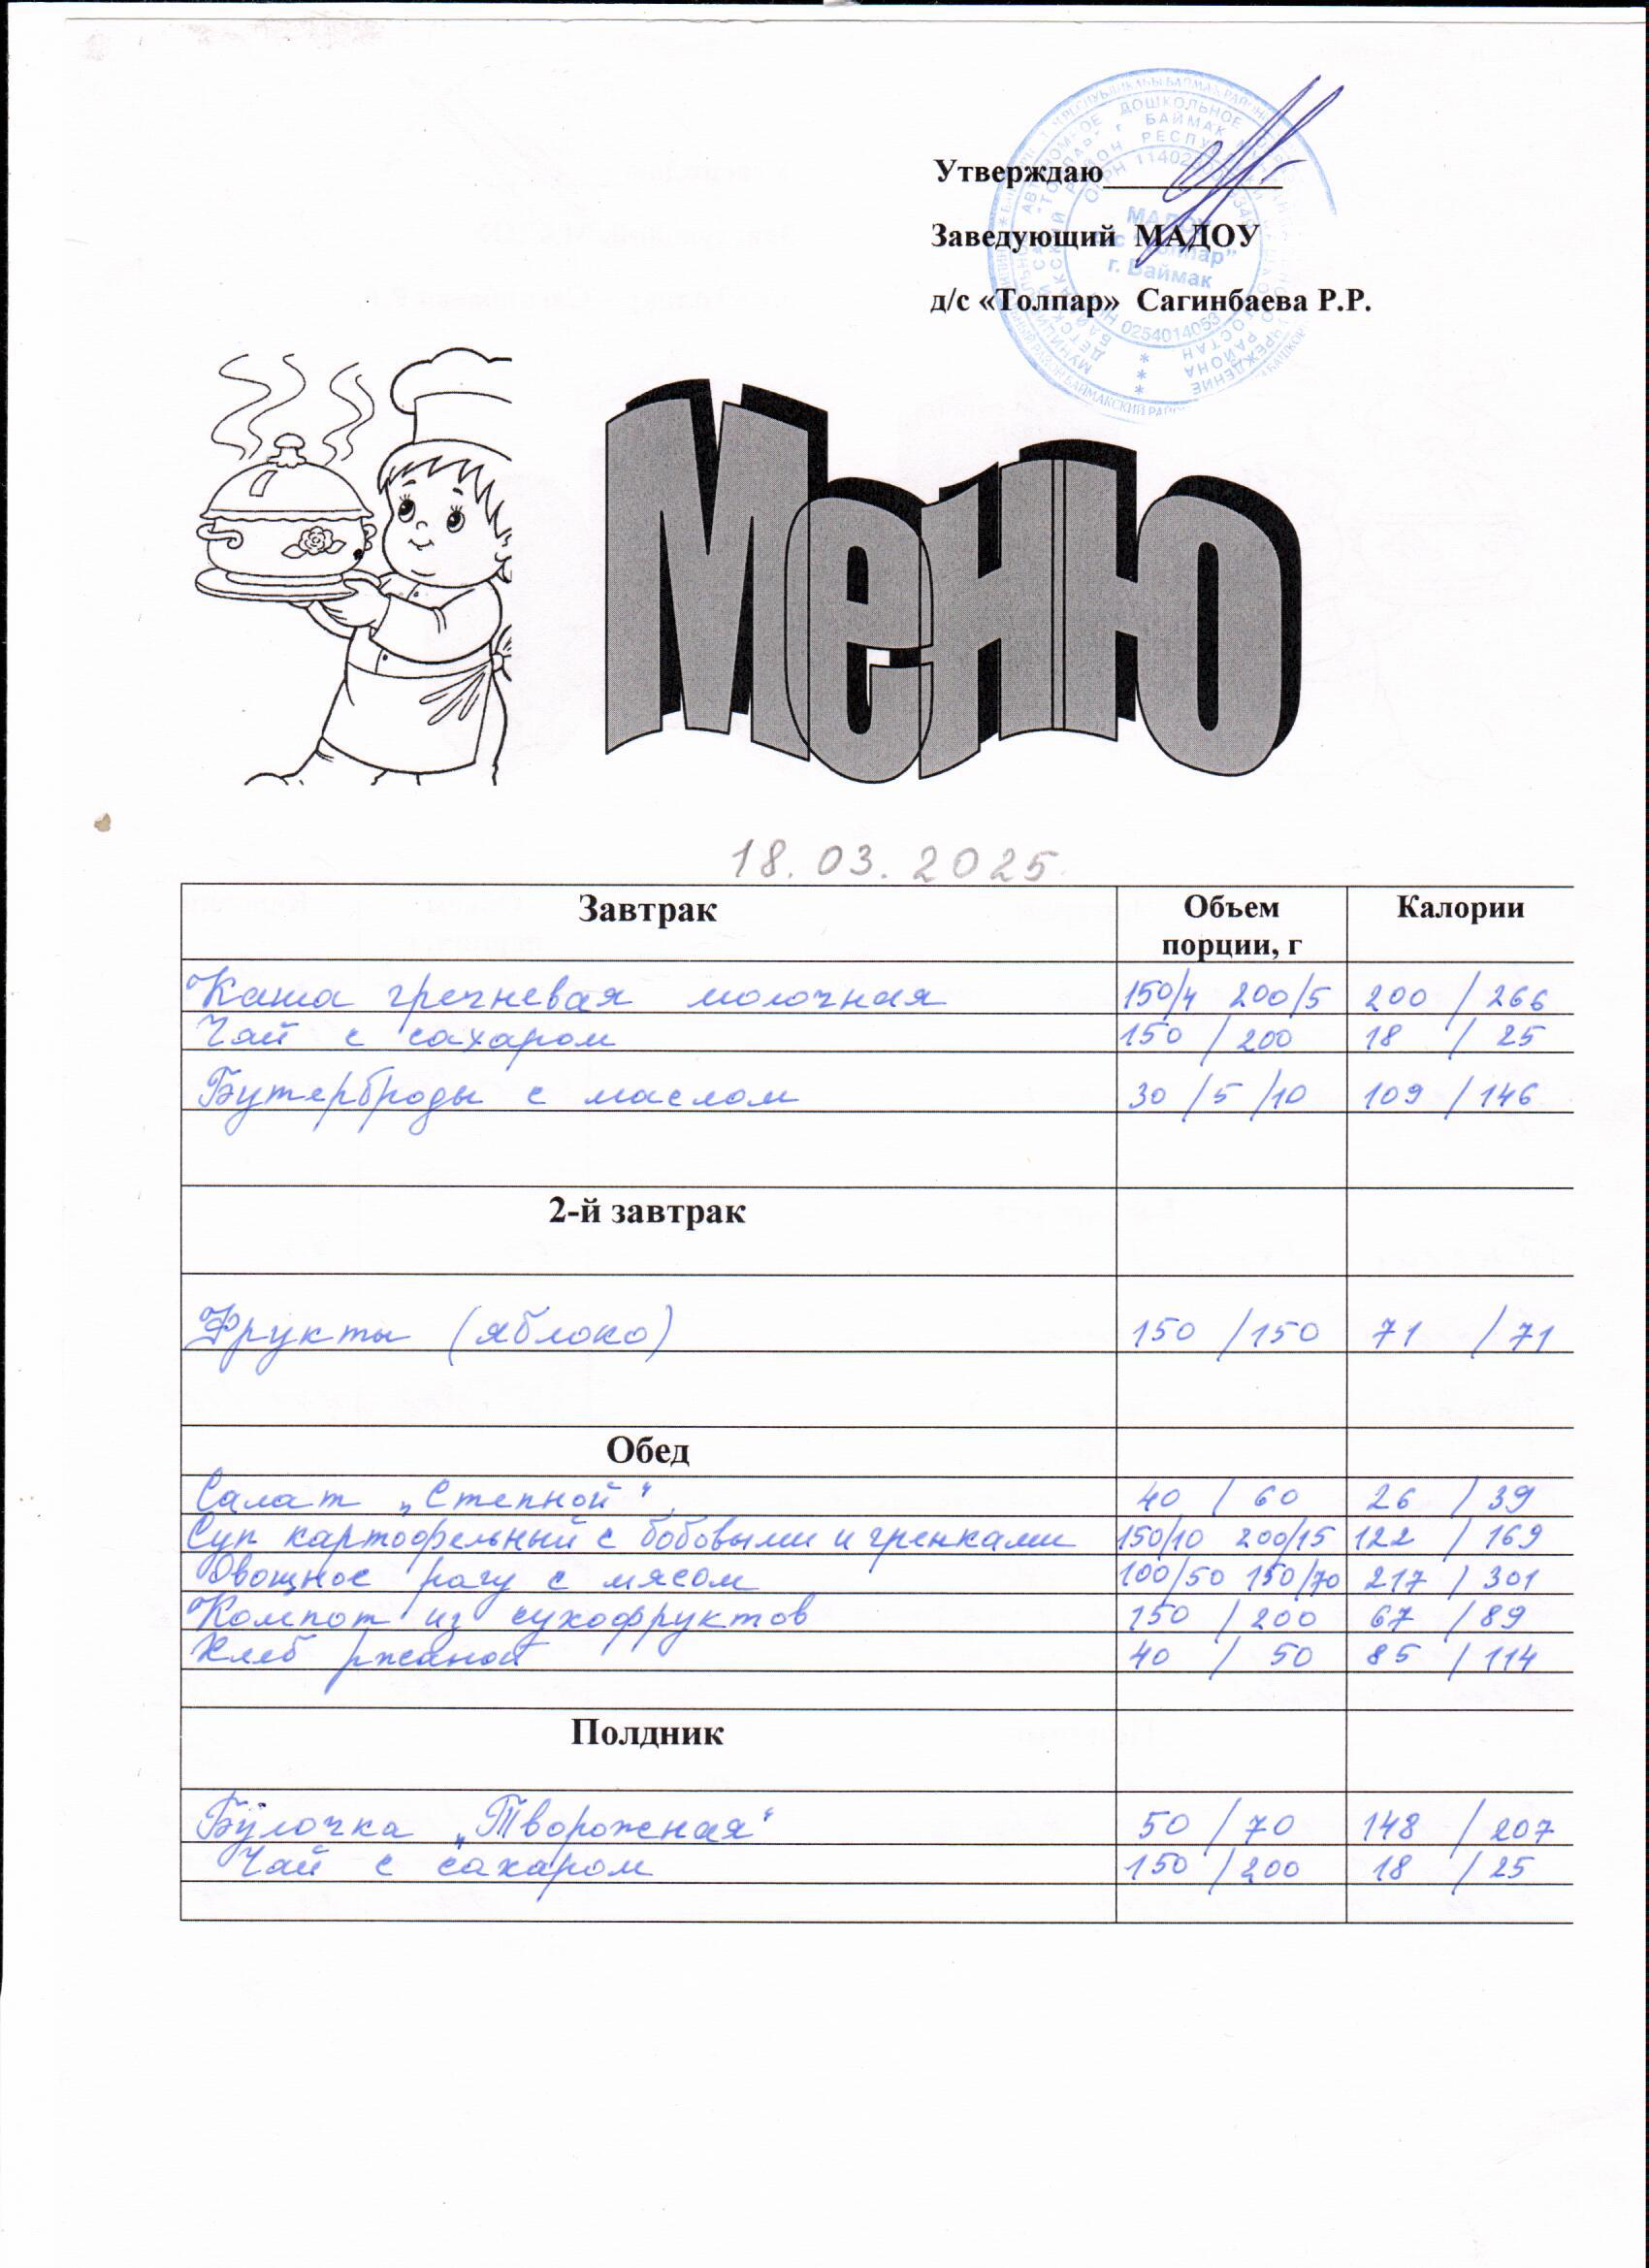 Утверждаю
Заведующий МАДОУ
д/с «Толпар» Сагинбаева Р.Р.
МАДОУ
г. Баймак
0254014053
Меню
18.03.2025
Завтрак Объем порции, г Калории
Каша гречневая молочная 150/4 200/5 200 / 266
Чай с сахаром 150 / 200 18 / 25
Бутерброды с маслом 30 /5 /10 109 / 146
2-й завтрак
Фрукты (яблоко) 150 / 150 71 / 71
Обед
Салат „Степной“ 40 / 60 26 / 39
Суп картофельный с бобовыми и гренками 150/10 200/15 122 / 169
Овощное рагу с мясом 100/50 150/70 217 / 301
Компот из сухофруктов 150 / 200 67 / 89
Хлеб ржаной 40 / 50 85 / 114
Полдник
Булочка „Творожная“ 50 / 70 148 / 207
Чай с сахаром 150 / 200 18 / 25